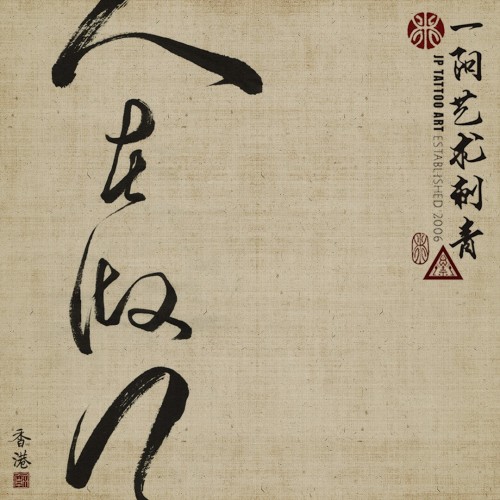 一阳艺术刺青
JP TATTOO ART ESTABLISHED 2006
人在做
香港